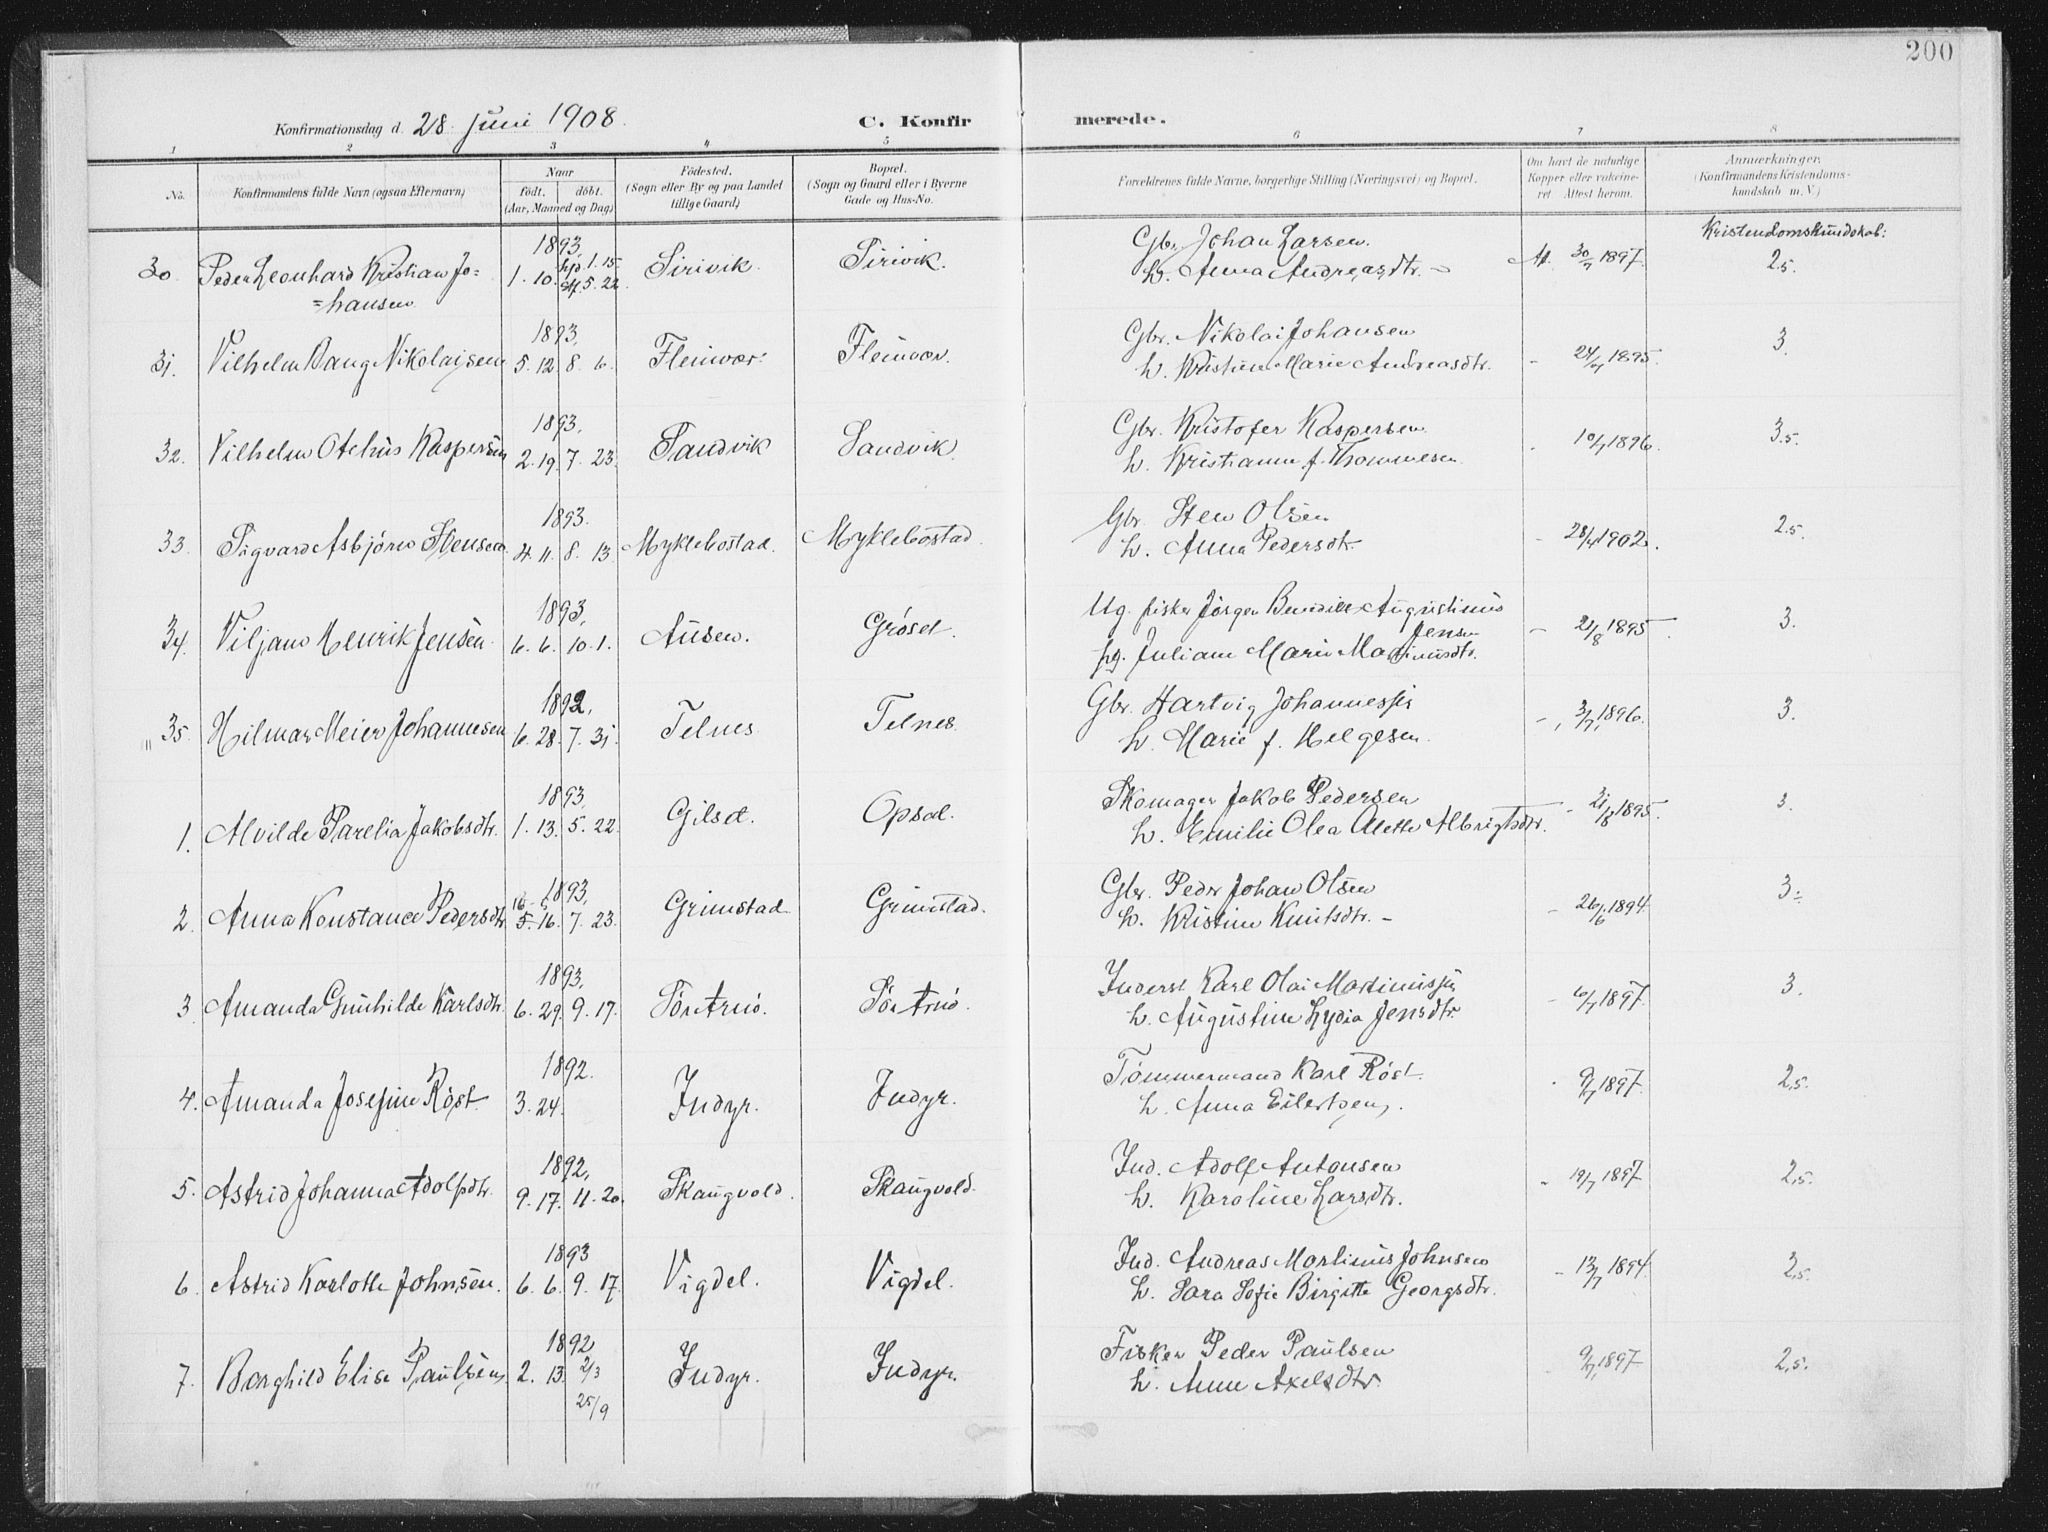 200
Konfirmationsdag d. 28. Juni 1908. C. Konfirmerede.
1 2 3 4 5 6 7 8
No. Konfirmandens fulde Navn (ogsaa Efternavn) Naar født, døbt. (Aar, Maaned og Dag) Fødested. (Sogn eller By og paa Landet tillige Gaard) Bopæl. (Sogn og Gaard eller i Byerne Gade og Hus-No. Forældrenes fulde Navne, borgerlige Stilling (Næringsvei) og Bopæl. Om havt de naturlige Kopper eller vakcineret. Attest herom. Anmærkninger. (Konfirmandens Kristendomskundskab m. V.)
Kristendomskundskab:
30. Peder Leonhard Kristian Jo=
=hansen 1893, 1. 10. hjd. 1. 15. stf. 5. 22. Sirivik. Sirivik. Gbr. Johan Larsen. At. 30/7 1897. 2.5.
h. Anna Andreasdtr. -
31. Vilhelm Bang Nikolaisen 1893, 5. 12. 8. 6. Fleinvær. Fleinvær. Gbr. Nikolai Johansen - 24/7 1895. 3.
h. Kristine Marie Andreasdtr.
32. Vilhelm Otelius Kaspersen 1893, 2. 19. 7. 23. Sandvik Sandvik. Gbr. Kristofer Kaspersen 10/7 1896. 3.5.
h. Kristianne f. Thommesen
33. Sigvard Asbjörn Stensen 1893. 4. 11. 8. 13. Myklebostad. Myklebostad. Gbr. Sten Olsen - 28/4 1902. 2.5.
h. Anna Pedersdtr.
34. Viljam Henrik Jensen. 1893, 6. 6. 10. 1. Ausen. Gröset. Ug. fisker Jörgen Benedikt Augustinus
Jensen - 21/8 1895. 3.
pg. Juliane Marie Martinusdtr.
35. Hilmar Meier Johannesen 1892, 6. 28. 7. 31. Telnes Telnes. Gbr. Hartvig Johannessen - 3/7 1896. 3.
h. Marie f. Helgesen.
1. Alvilde Parelia Jakobsdtr. 1893, 1. 13. 5. 22. Gilset. Opsal. Skomager Jakob Pedersen - 21/8 1895. 3.
h. Emilie Olea Alette Albrigtsdtr.
2. Anna Konstance Pedersdtr. 1893, 5. 16. 7. 23. Grimstad Grimstad. Gbr. Peder Johan Olsen - 26/6 1894. 3÷
h. Kristine Knutsdtr. -
3. Amanda Gunhilde Karlsdtr. 1893, 6. 29. 9. 17. Sör Arnö. Sör Arnö. Inderst Karl Olai Martinussen - 6/7 1897. 3.
h. Augustine Lydia Jensdtr.
4. Amanda Josefine Röst. 1892. 3. 24. Indyr. Indyr. Tömmermand Karl Röst. 9/7 1897. 2.5.
h. Anna Eilertsen.
5. Astrid Johanna Adolfsdtr. 1892, 9. 17. 11. 20. Skaugvold. Skaugvold. Ind. Adolf Antonsen 19/7 1897 2.5.
h. Karoline Larsdtr.
6. Astrid Karlotte Johnsen. 1893 6. 6. 9. 17. Vigdel. Vigdel. Ind. Andreas Martinus Johnsen - 13/7 1894. 2.5.
h. Sara Sofie Birgitte Georgsdtr.
7. Borghild Elise Paulsen 1892 2. 13. 2/3 25/9 Indyr. Indyr. Fisker Peder Paulsen - 9/7 1897 2.5.
h. Anne Axelsdtr.